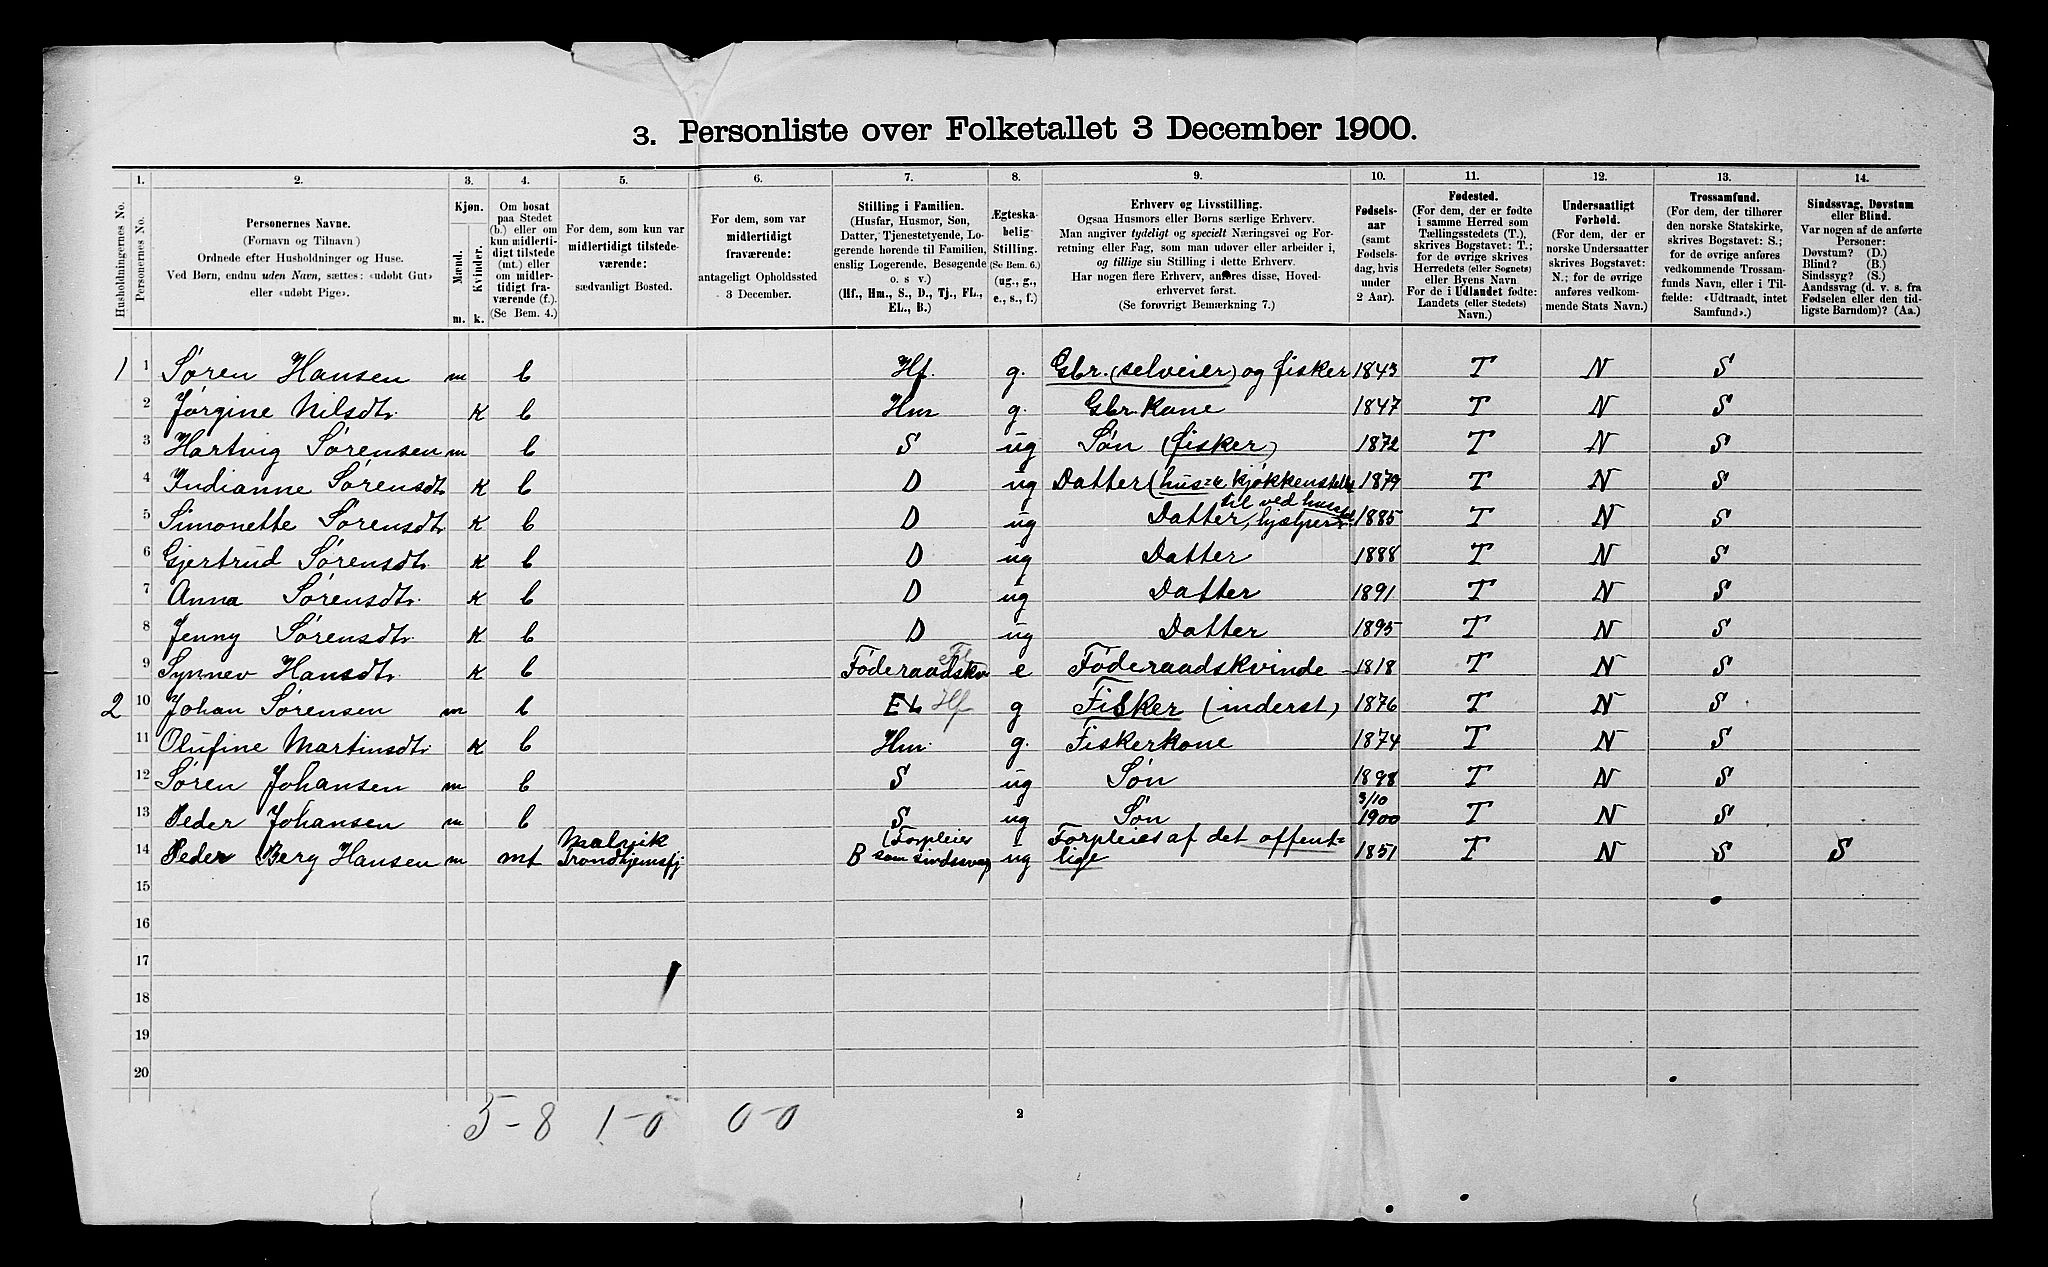 3. Personliste over Folketallet 3 December 1900.
1. 2. 3. 4. 5. 6. 7. 8. 9. 10. 11. 12. 13. 14.
Husholdningernes No.
Personernes No.
Personernes Navne.
(Fornavn og Tilnavn)
Ordnede efter Husholdninger og Huse.
Ved Børn, endnu uden Navn, sættes: «udøbt Gut»
eller «udøbt Pige».
Kjøn.
Mænd.
Kvinder.
m. k.
Om bosat
paa Stedet
(b.) eller om
kun midlerti-
digt tilstede
(mt.) eller
om midler-
tidigt fra-
værende (f.).
(Se Bem. 4.)
For dem, som kun var
midlertidigt tilstede-
værende:
sædvanligt Bosted.
For dem, som var
midlertidigt
fraværende:
antageligt Opholdssted
3 December.
Stilling i Familien.
(Husfar, Husmor, Søn,
Datter, Tjenestetyende, Lo-
gerende hørende til Familien,
enslig Logerende, Besøgende
o. s. v.)
(Hf., Hm., S., D., Tj., FL.,
EL., B.)
Ægteska-
belig
Stilling.
(Se Bem. 6.)
(ug., g.,
e., s., f.)
Erhverv og Livsstilling.
Ogsaa Husmors eller Børns særlige Erhverv.
Man angiver tydeligt og specielt Næringsvei og For-
retning eller Fag, som man udover eller arbeider i,
og tillige sin Stilling i dette Erhverv.
Har nogen flere Erhverv, anføres disse, Hoved-
erhvervet først.
(Se forøvrigt Bemærkning 7.)
Fødsels-
aar
(samt
Fødsels-
dag, hvis
under
2 Aar).
Fødested.
(For dem, der er fødte
i samme Herred som
Tællingsstedets (T.),
skrives Bogstavet: T.;
for de øvrige skrives
Herredets (eller Sognets)
eller Byens Navn
For de i Udlandet fødte:
Landets (eller Stedets)
Navn.)
Undersaatligt
Forhold.
(For dem, der er
norske Undersaatter
skrives Bogstavet:
N.; for de øvrige
anføres vedkom-
mende Stats Navn.)
Trossamfund.
(For dem, der tilhører
den norske Statskirke,
skrives Bogstavet: S.;
for de øvrige anføres
vedkommende Trossam-
funds Navn, eller i Til-
fælde: «Udtraadt, intet
Samfund».)
Sindssvag, Døvstum
eller Blind.
Var nogen af de anførte
Personer:
Døvstum? (D.)
Blind? (B.)
Sindssyg? (S.)
Aandssvag (d. v. s. fra
Fødselen eller den tid-
ligste Barndom)? (Aa.)
1 1 Søren Hansen m b Hf. g. Gbr. (selveier) og fisker 1843 T N S
2 Jørgine Nilsdtr. K b Hm g. Gbr. kone 1847 T N S
3 Hartvig Sørensen m b S ug Søn (fisker) 1872 T N S
4 Indianne Sørensdtr K b D ug Datter (hus= & kjøkkenstel 1879 T N S
5 Simonette Sørensdtr K b D ug Datter, hjelper til ved husstel 1885 T N S
6 Gjertrud Sørensdtr. K b D ug Datter 1888 T N S
7 Anna Sørensdtr. K b D ug Datter 1891 T N S
8 Jenny Sørensdtr. K b D ug Datter 1895 T N S
9 Synnev Hansdtr. K b Føderaadskv Fl e Føderaadskvinde 1818 T N S
2 10 Johan Sørensen m b EL Hf g Fisker (inderst) 1876 T N S
11 Olufine Martinsdtr. K b Hm. g. Fiskerkone 1874 T N S
12 Søren Johansen m b S ug Søn 1898 T N S
13 Peder Johansen m b S ug Søn 3/10 1900 T N S
14 Peder Berg Hansen m mt Malvik Trondhjemsfj B (Forpleies som sindssvag) ug Forpleies af det offent=lige 1851 T N S S
15
16
17
18
19
20
5-8 1-0 0-0
2